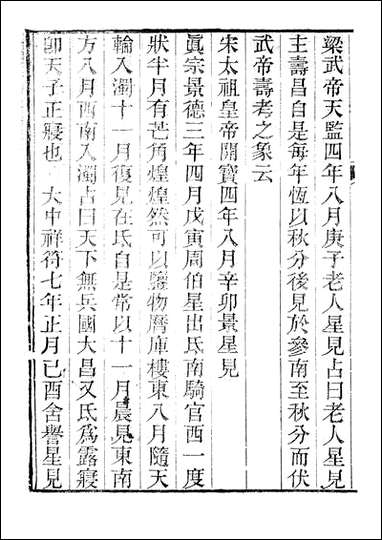 梁武帝天監四年八月庚子老人星見占曰老人星見
主壽昌自是每年恆以秋分後見於參南至秋分而伏
武帝壽考之象云
宋太祖皇帝開寶四年八月辛卯景星見
眞宗景德三年四月戊寅周伯星出氐南騎官西一度
狀半月有芒角煌煌然可以鑒物曆庫樓東八月隨天
輪入濁十一月復見在氐自是常以十一月晨見東南
方八月西南入濁占曰天下無兵國大昌又氐爲露寢
卽天子正寢也 大中祥符七年正月己酉含譽星見